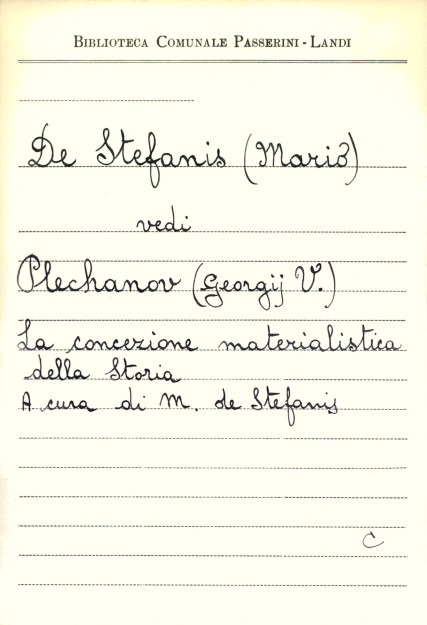 BIBLIOTECA COMUNALE PASSERINI - LANDI
De Stefanis (Mario)
vedi
Plechanov (Georgij V.)
La concezione materialistica
della Storia
A cura di M. de Stefanis
C